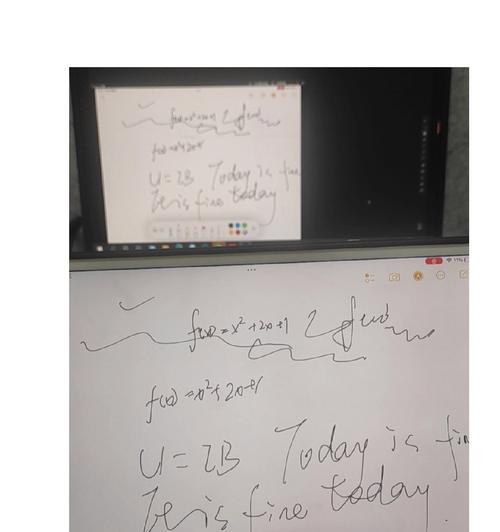 f(x)=x²+2x+1
f(x)=x²+2x+1
U=IB Today is fine
is fine today
f(x)=x²+2x+1
f(x)=x²+2x+1
U=IB Today is fin
is fine today